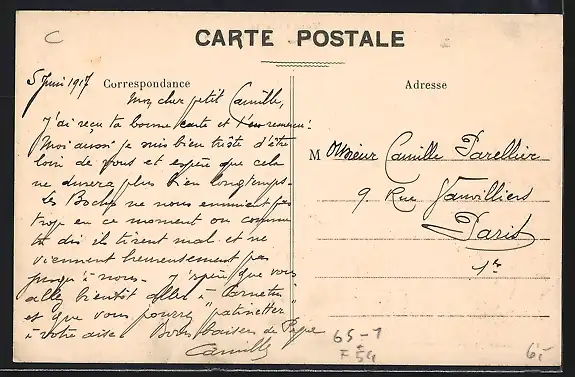 C
CARTE POSTALE
5 Juin 1917
Correspondance
Adresse
Mon cher petit Camille,
J'ai reçu ta bonne carte et t'en remercie!
Moi aussi je suis bien triste d'être
loin de vous et espère que cela
ne durera plus bien longtemps.
Les Boches ne nous ennuient pas
trop en ce moment ou comme
tu dis ils tirent mal et ne
viennent heureusement pas
jusqu'à nous. J'espère que vous
allez bientôt aller à
et que vous pourrez "patinetter"
à votre aise. Bons baisers de Papa
Camille
M Monsieur Camille Parellier
9. Rue Vauvilliers
Paris
1er
65-1
F 54
6.-